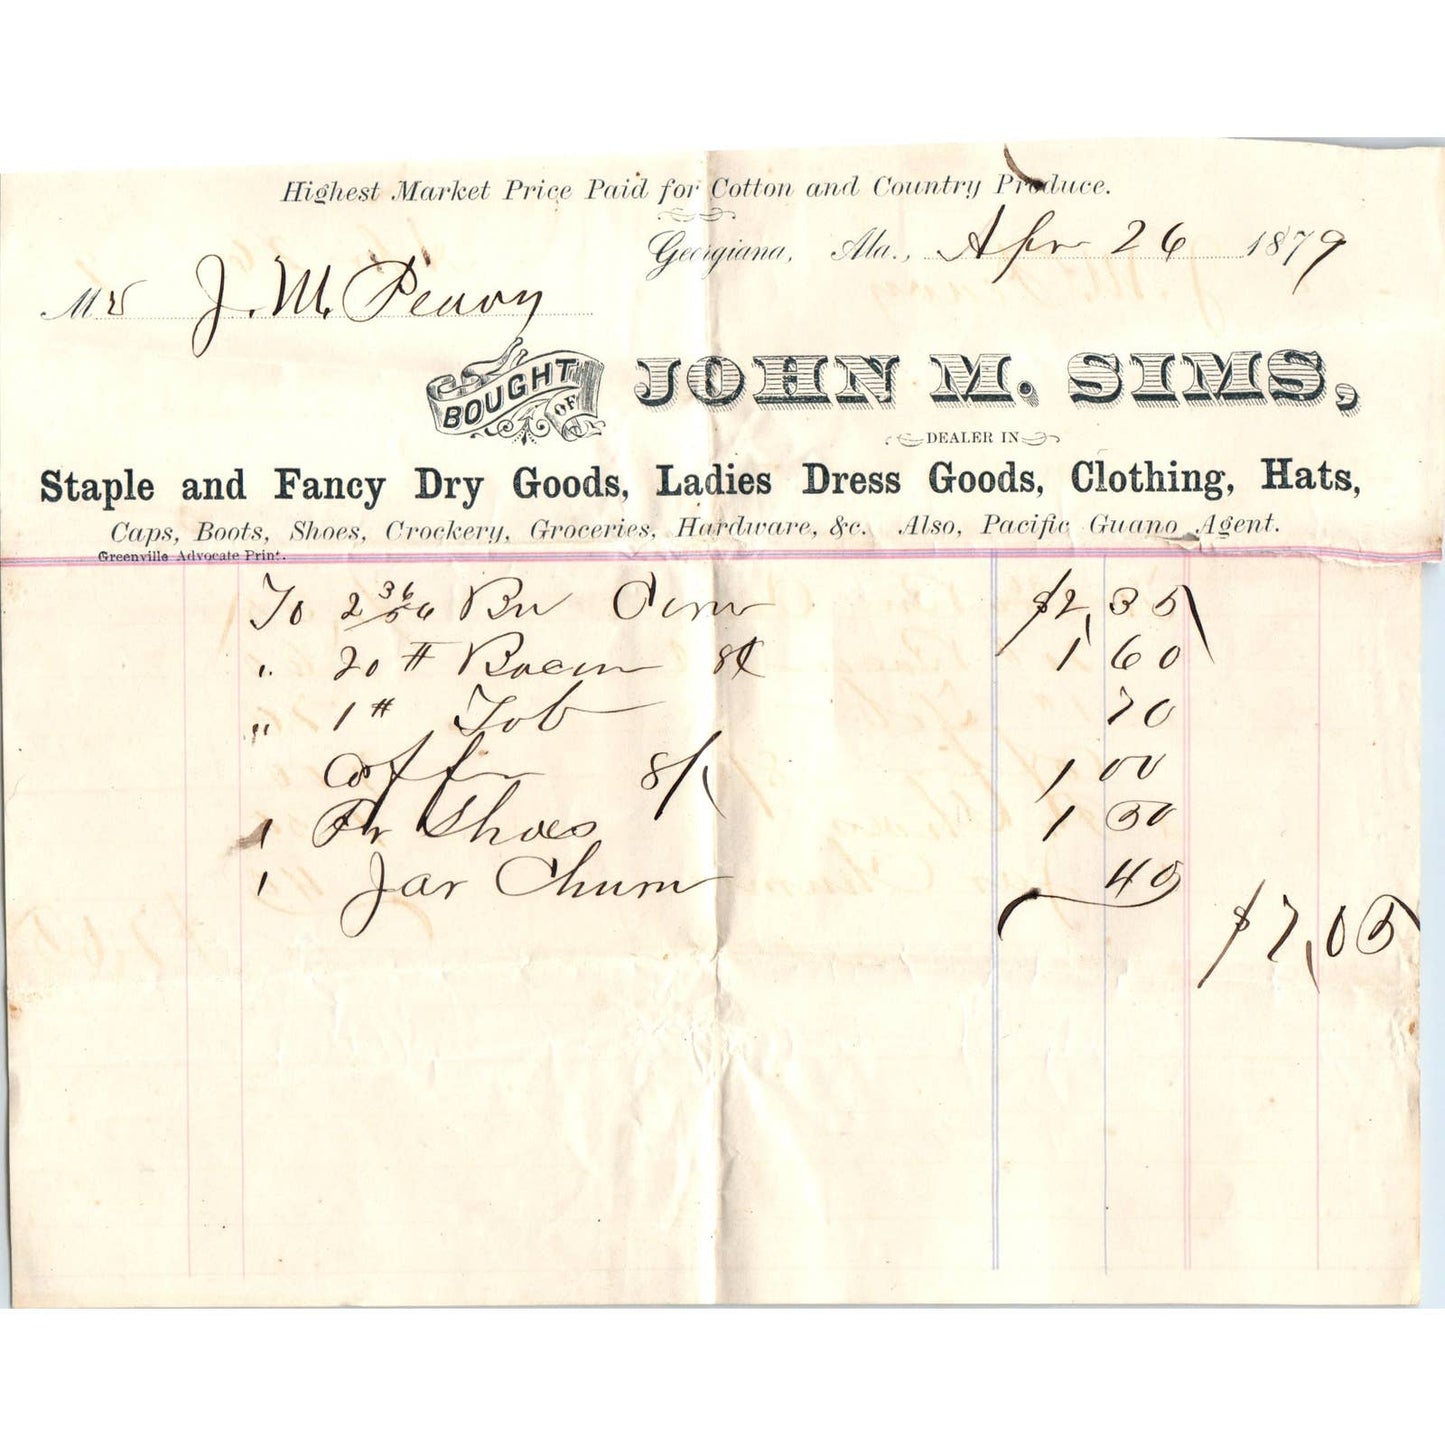 Highest Market Price Paid for Cotton and Country Produce.
Georgiana, Ala., Apr 26 1879
Mr J. M. Peavy
BOUGHT OF JOHN M. SIMS,
DEALER IN
Staple and Fancy Dry Goods, Ladies Dress Goods, Clothing, Hats,
Caps, Boots, Shoes, Crockery, Groceries, Hardware, &c. Also, Pacific Guano Agent.
Greenville Advocate Print.
To 2 36/56 Bu Corn $2,35
" 20 # Bacon 8¢ 1 60
" 1 # Tob 70
Coffee 8/ 1 00
1 Pr Shoes 1
1 Jar Churn 40
$7,05